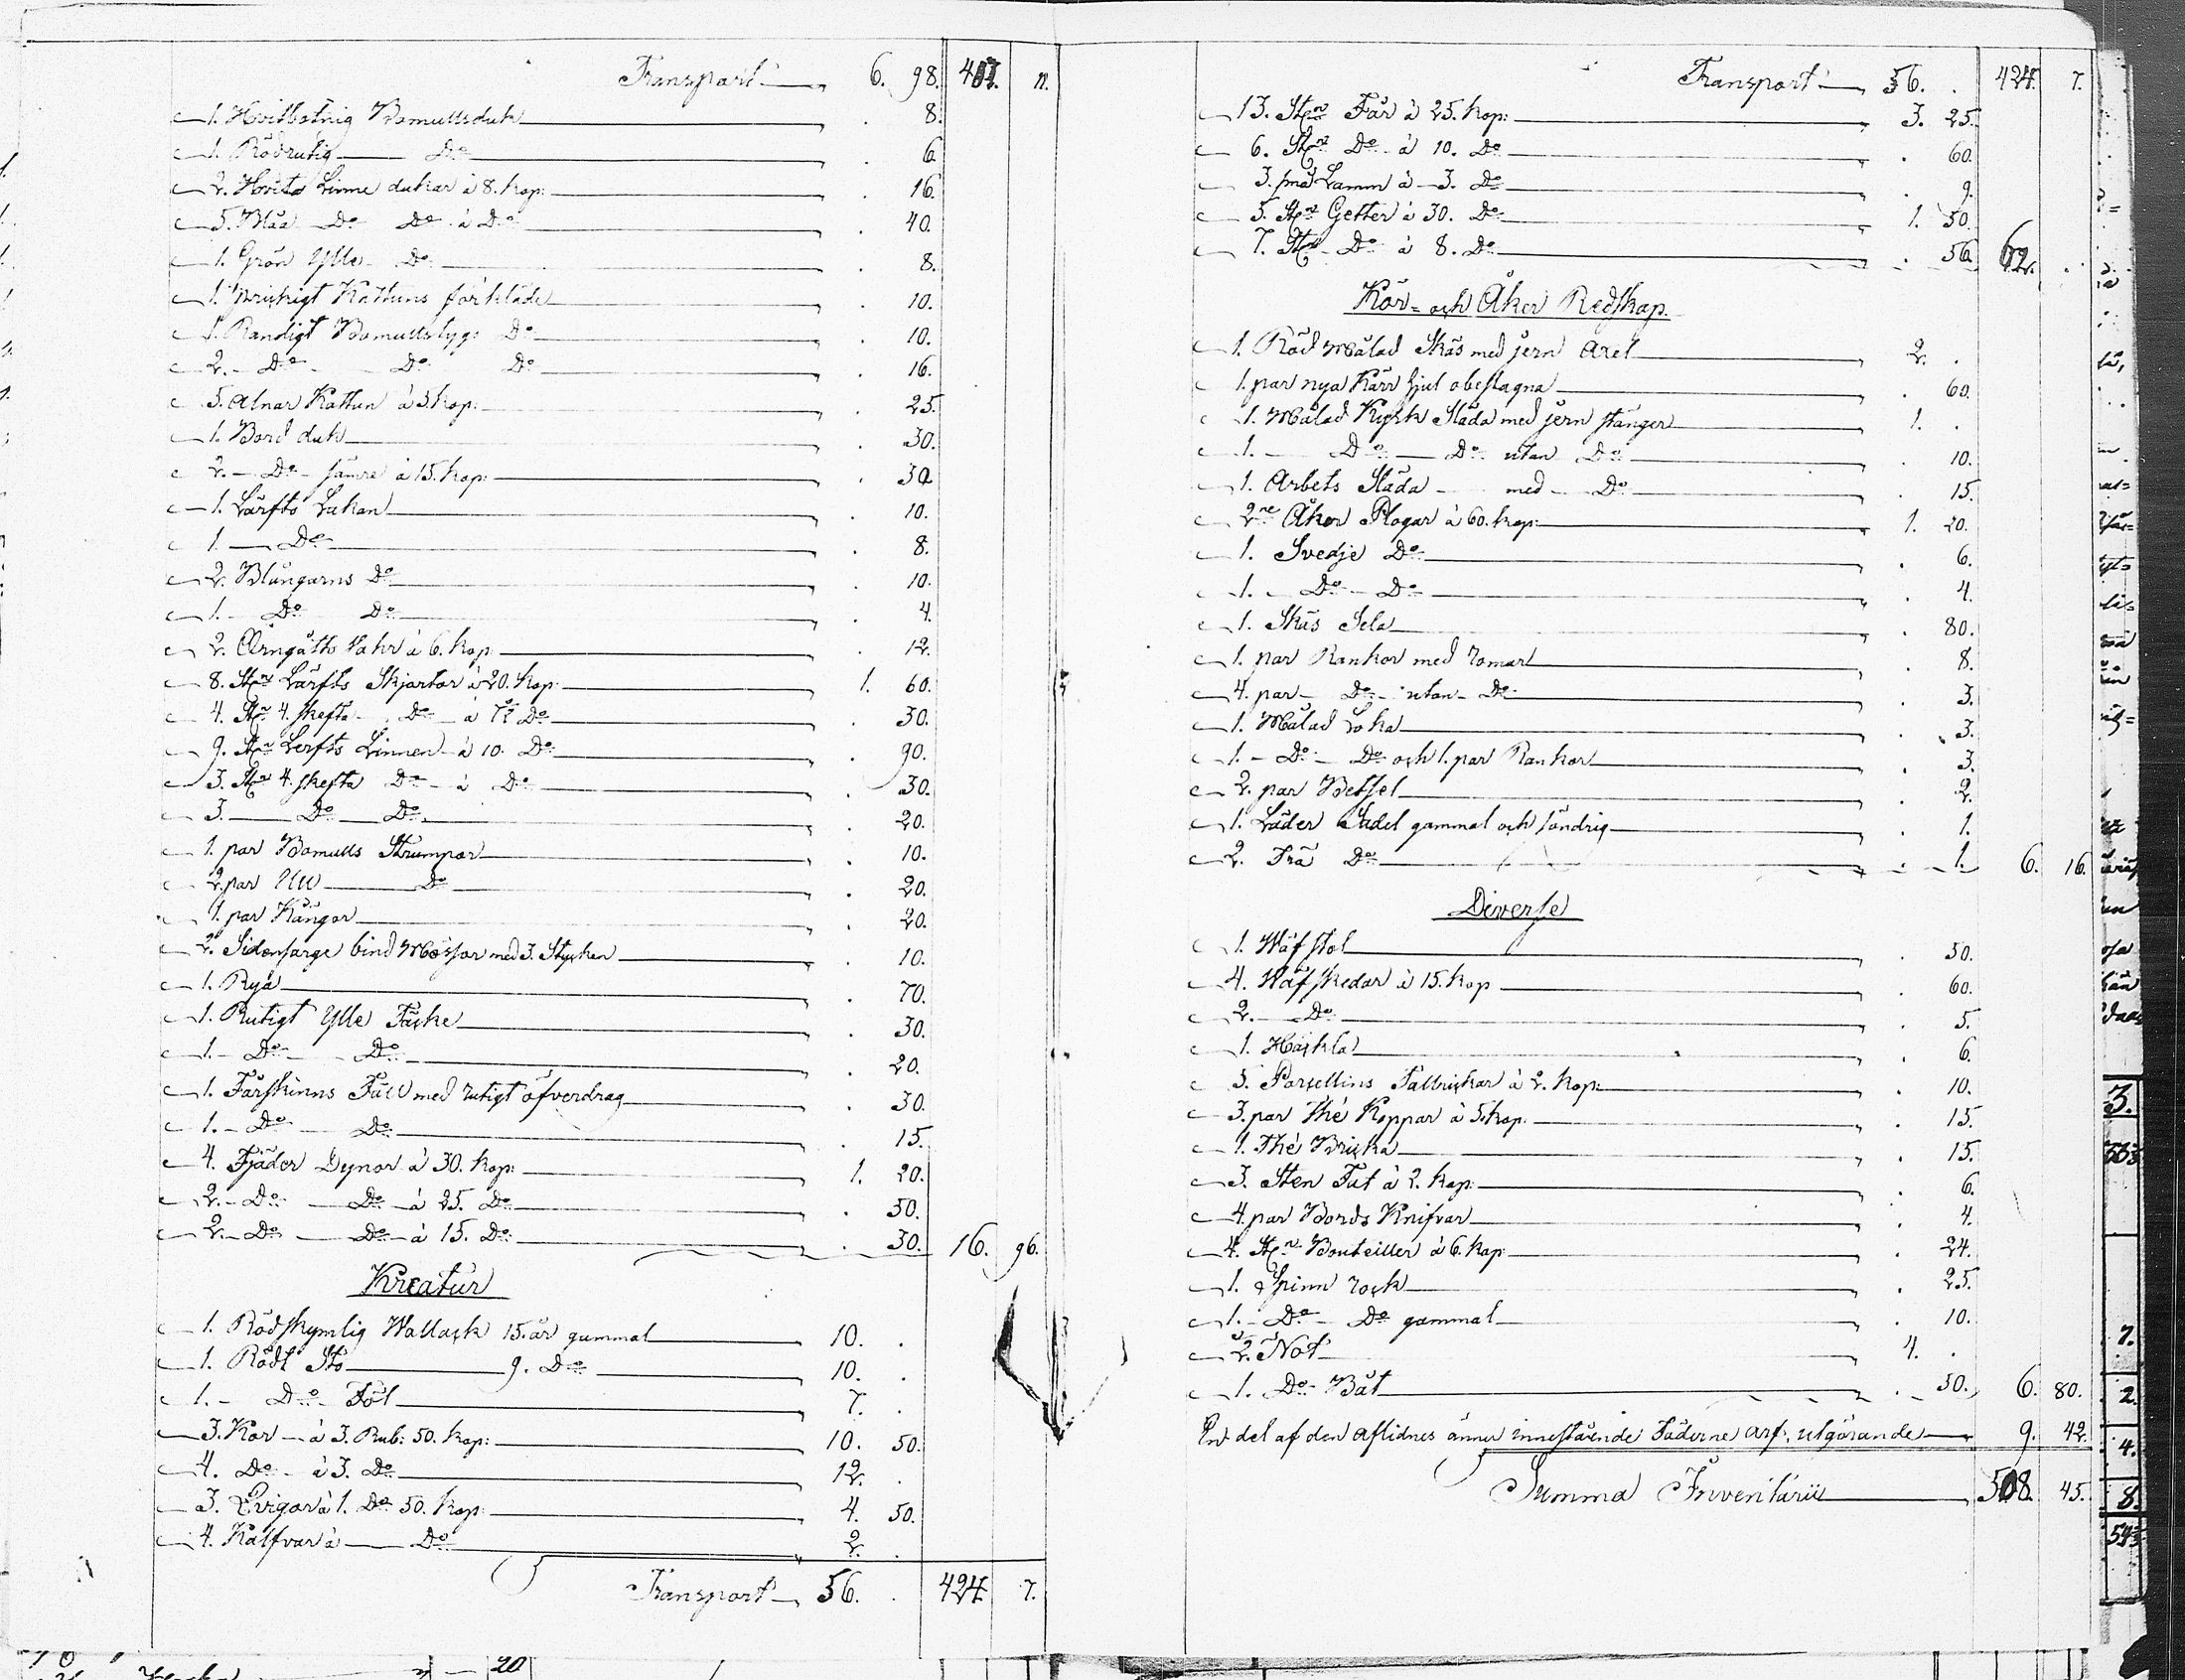 Transport 6. 98. 407. 11.
1. Hvitbotnig Bomullsduk . 8.
1. Rödrutig Do . 6
2. Hvita Linne dukar à 8. kop: . 16.
5. Blåa Do Do à Do . 40.
1. Grön Ylle Do . 8.
1. Prickigt Kattuns förkläde . 10.
1. Randigt Bomullstygs Do . 10.
2. Do Do Do . 16.
5. Alnar Kattun à 5. kop: . 25.
1. Bord duk . 30.
2. Do sämre à 15. kop: . 30
1. Lärfts Lakan . 10.
1. Do . 8.
2. Blångarns Do . 10.
1. Do Do . 4.
2. Örngåtts Vahr à 6. kop . 12.
8. Stn Lärfts Skjortor à 20. kop: 1. 60.
4. Stn 4. skefta Do à 7½ Do . 30.
9. Stn Lerfts Linnen à 10. Do . 90.
3. Stn 4. skefta Do à Do . 30.
3. Do Do . 20.
1. par Bomulls Strumpor . 10.
2. par Ull Do . 20.
1. par Kängor . 20.
2. Sidensarge bind Mössor med 3. Stycken . 10.
1. Rya . 70.
1. Rutigt Ylle Täcke . 30.
1. Do Do . 20.
1. Fårskinns Fäll med rutigt öfverdrag . 30.
1. Do Do . 15.
4. Fjäder Dynor à 30. kop: 1. 20.
2. Do Do à 25. Do . 50.
2. Do Do à 15. Do . 30. 16. 96.
Kreatur
1. Rödskymlig Wallack 15. år gammal 10. .
1. Rödt Sto 9. Do 10. .
1. Do Föl 7. .
3. Kor à 3. Rub: 50. kop: 10. 50.
4. Do à 3. Do 12. .
3. Qvigor à 1. Do 50. kop: 4. 50.
4. Kalfvar à Do 2. .
Transport 56. . 424 7.
Transport 56. . 424. 7.
13. Stn Får à 25. kop: 3. 25.
6. Stn Do à 10. Do . 60.
3. små Lamm à 3. Do . 9.
5. Stn Getter à 30. Do 1. 50.
7. Stn Do à 8. Do . 56 62. .
Kör- och Åker Redskap.
1. Röd Målad Skäs med jern Axel 2. .
1. par nya Kärr hjul obeslagna . 60.
1. Målad Kyrk Släda med jern stänger 1. .
1. Do Do utan Do . 10.
1. Arbets Släda med Do . 15.
2ne Åker Plogar à 60. kop: 1. 20.
1. Svedje Do . 6.
1. Do Do . 4.
1. Skäs Sela . 80.
1. par Rankor med romar . 8.
4. par Do utan Do . 3.
1. Målad Loka . 3.
1. Do Do och 1. par Rankor . 3.
2. par Betsel . 2.
1. Läder Sadel gammal och söndrig . 1.
2. Trä Do . 1. 6. 16.
Diverse
1. Wäf stol . 50.
4. Wäf skedar à 15. kop . 60.
2. Do . 5.
1. Häckla . 6.
5. Porsellins Tallrickar à 2. kop: . 10.
3. par Thé Koppar à 5. kop. . 15.
1. Thé Bricka . 15.
3. Sten Fat à 2. kop: . 6.
4. par Bords Knifvar . 4.
4. Stn Bouteiller à 6. kop: . 24.
1. Spinn rock . 25.
1. Do Do gammal . 10.
2. Not 4. .
1. Do Båt . 50. 6. 80.
En del af den aflidnes ännu innestående Fäderne arf, utgörande 9. 42.
Summa Inventarii 508. 45.